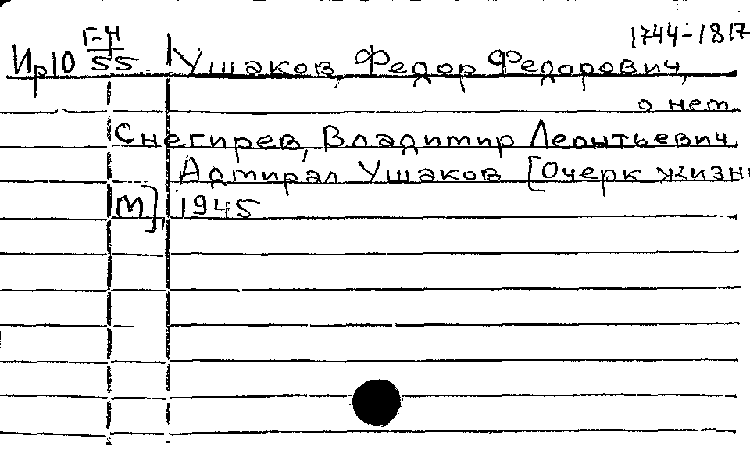 1744-1817
Ир10 Г-4/55 Ушаков, Федор Федорович,
о нем
Снегирев, Владимир Леонтьевич
Адмирал Ушаков [Очерк жизни
М], 1945